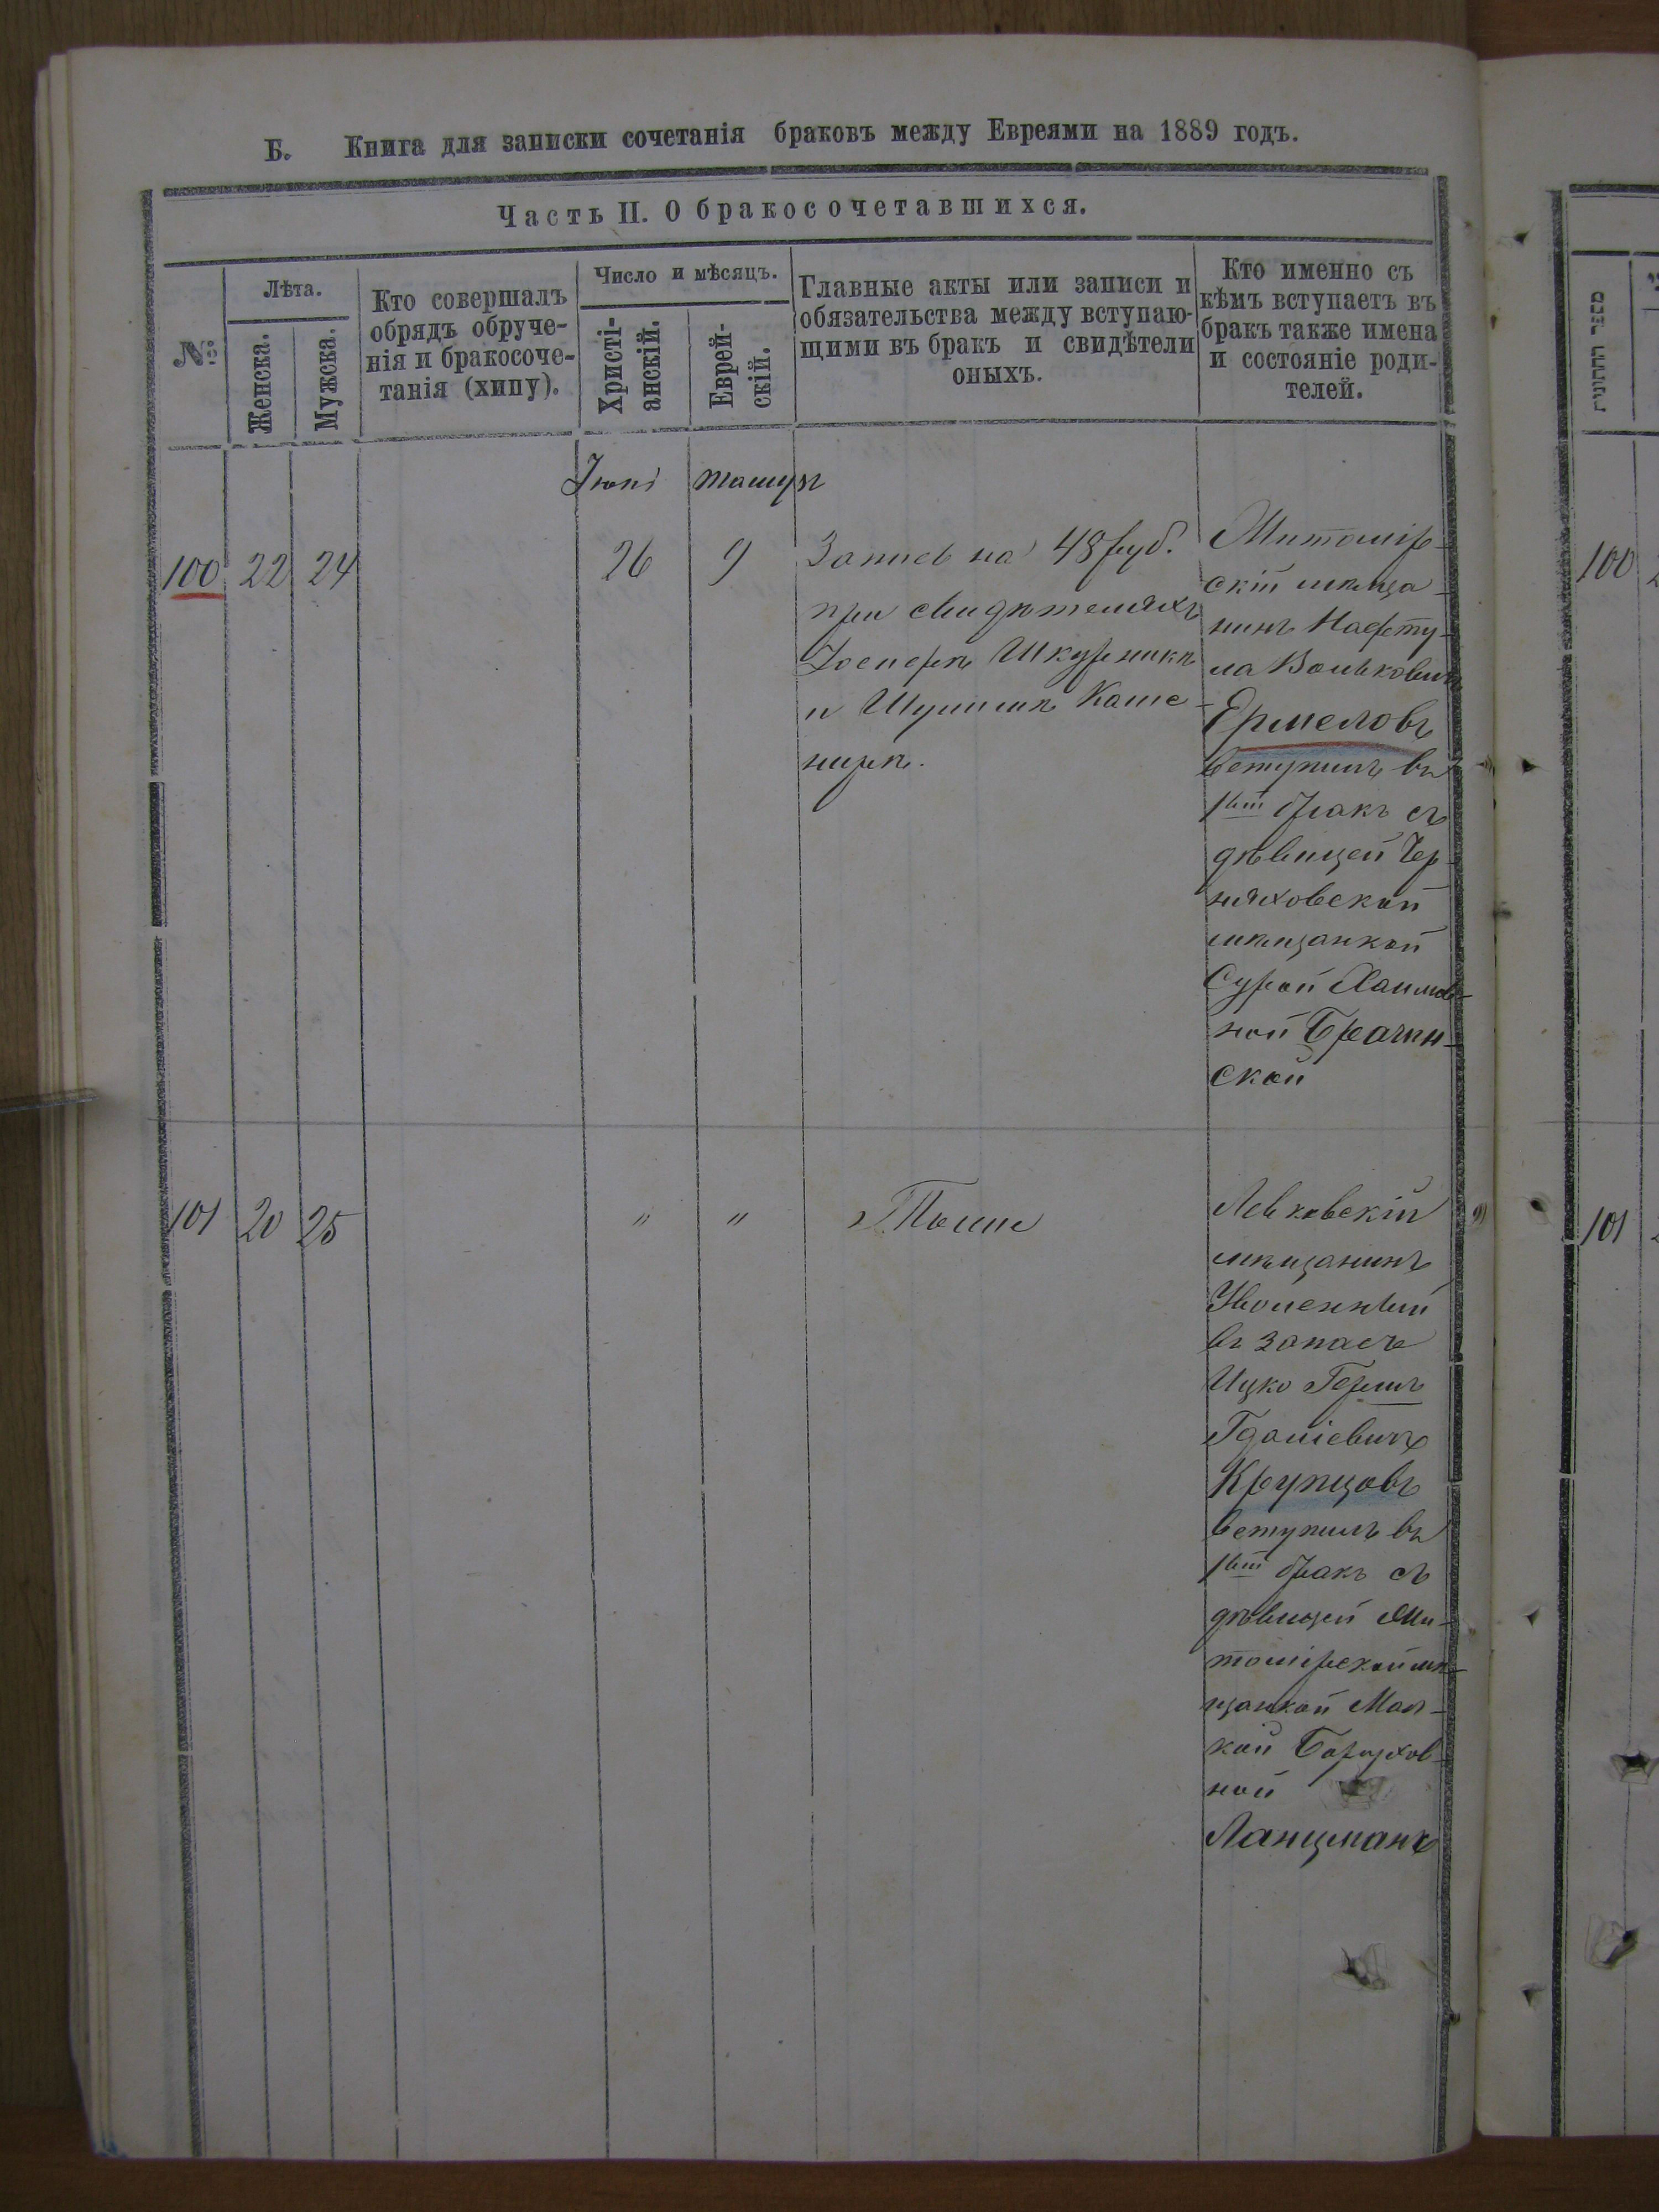 Б. Книга для записки сочетанія браковъ между Евреями на 1889 годъ.
Часть II. О бракосочетавшихся.
№
Лѣта.
Женска.
Мужска.
Кто совершалъ
обрядъ обруче-
нія и бракосоче-
танія (хипу).
Число и мѣсяцъ.
Христі-
анскій.
Еврей-
скій.
Главные акты или записи и
обязательства между вступаю-
щими въ бракъ и свидѣтели
оныхъ.
Кто именно съ
кѣмъ вступаетъ въ
бракъ также имена
и состояніе роди-
телей.
Тамузъ
100 22 24 26 9
Запись на 48 руб.
при свидѣтеляхъ
Іосперѣ Шкурникѣ
и Шулимѣ Каше-
нирѣ.
Житомір-
скій мѣща-
нинъ Нафту-
ла Вольковичъ
Ермеловъ
вступилъ въ
1ый бракъ съ
дѣвицей Чер-
няховской
мѣщанкой
Сурой Хаимов-
ной Брачин-
ской
101 20 25 " "
Тыше
Левковскій
мѣщанинъ
Уволенный
въ запасъ
Ицко Гершъ
Гдаліевичъ
Крупцовъ
вступилъ въ
1ый бракъ съ
дѣвицей Жи-
томірской мѣ-
щанкой Мал-
кой Борухов-
ной
Ланцманъ
מספר החתונות
100
101